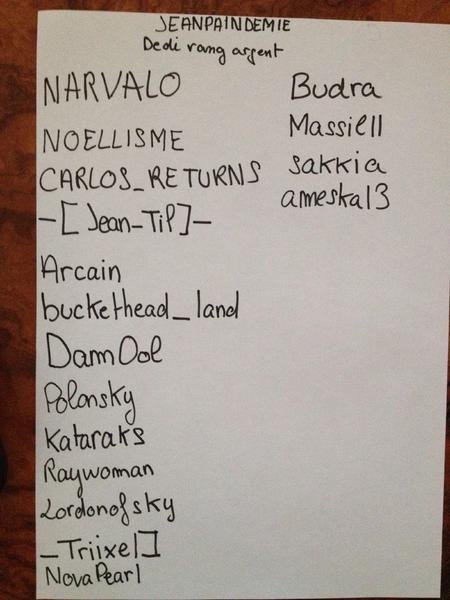 JEANPAINDEMIE
Dedi rang argent
NARVALO
NOELLISME
CARLOS_RETURNS
-[Jean-Tip]-
Arcain
buckethead_land
DamOol
Polonsky
Kataraks
Raywoman
Lordonofsky
_Triixel]
NovaPearl
Budra
Massiell
sakkia
ameska13